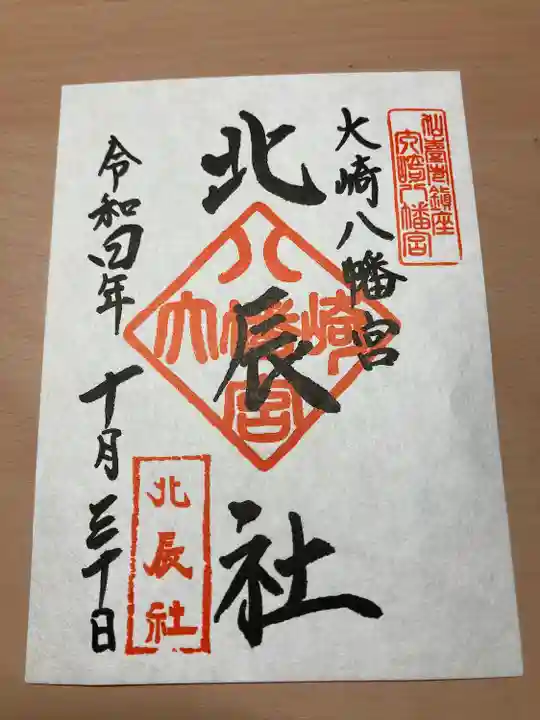 仙臺巷鎮座
大崎八幡宮
大崎八幡宮
北辰社
八幡宮
大崎
北辰社
令和四年 十月三十日